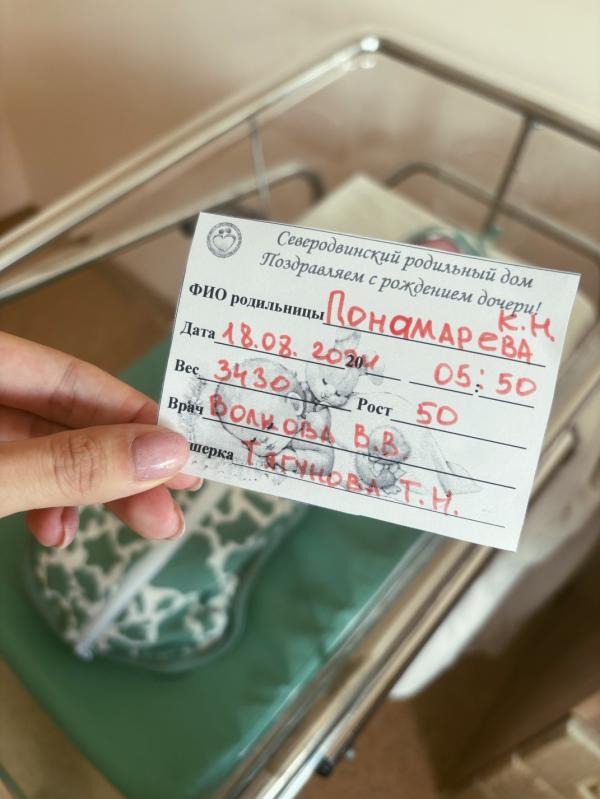 Северодвинский родильный дом
Поздравляем с рождением дочери!
ФИО родильницы Понамарева К.Н.
Дата 18.08. 2024 05:50
Вес 3430 Рост 50
Врач Волкова В.В.
шерка Тягунова Т.Н.